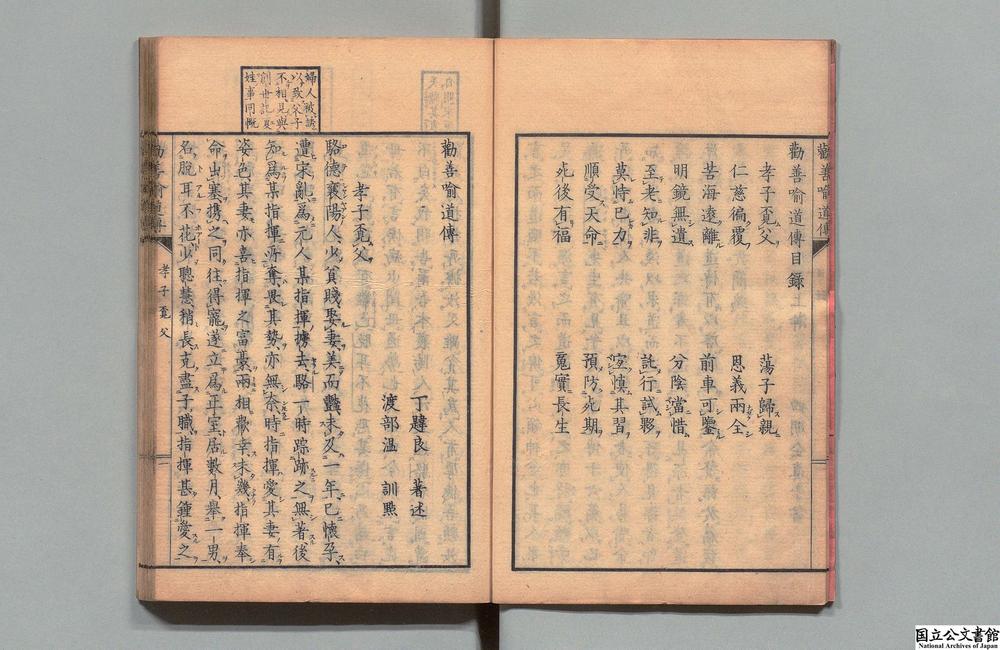 勸善喻道傳
勸善喻道傳目錄
孝子覓父 蕩子歸親
仁慈徧覆 恩義兩全
苦海遠離 前車可鑒
明鏡無遺 分陰當惜
至老知非 託行試夥
莫恃已力 宜慎其習
順受天命 預防死期
死後有福 冤實長生
婦人被誘
以致父子
不相見與
創世記夏
娃事同慨
勸善喻道傳
丁韙良 著述
渡部溫 訓點
孝子覓父
駱德襄陽人少貧賤娶妻美而豔未及一年已懷孕
遭宋亂爲元人某指揮擄去駱一時踪跡之無著後
知爲某指揮所奪畏其勢亦無奈時指揮愛其妻有
姿色其妻亦喜指揮之富豪兩相歡幸未幾指揮奉
命出塞携之同往得寵遂立爲正室居數月舉一男
名脫耳不花少聰慧稍長克盡子職指揮甚鍾愛之
勸善喻道傳
孝子覓父
一
國立公文書館
National Archives of Japan